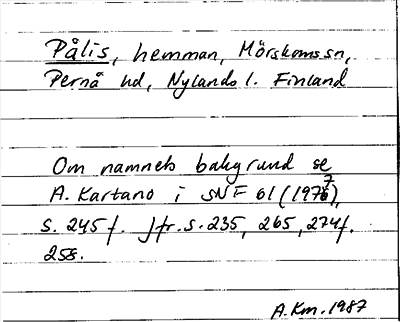 Pålis, hemman, Mörskomssn,
Pernå hd, Nylands l. Finland
Om namnets bakgrund se
A. Kartano i SNF 61 (1977),
s. 245 f. Jfr. s. 235, 265, 274 f.
258.
A.Km. 1987